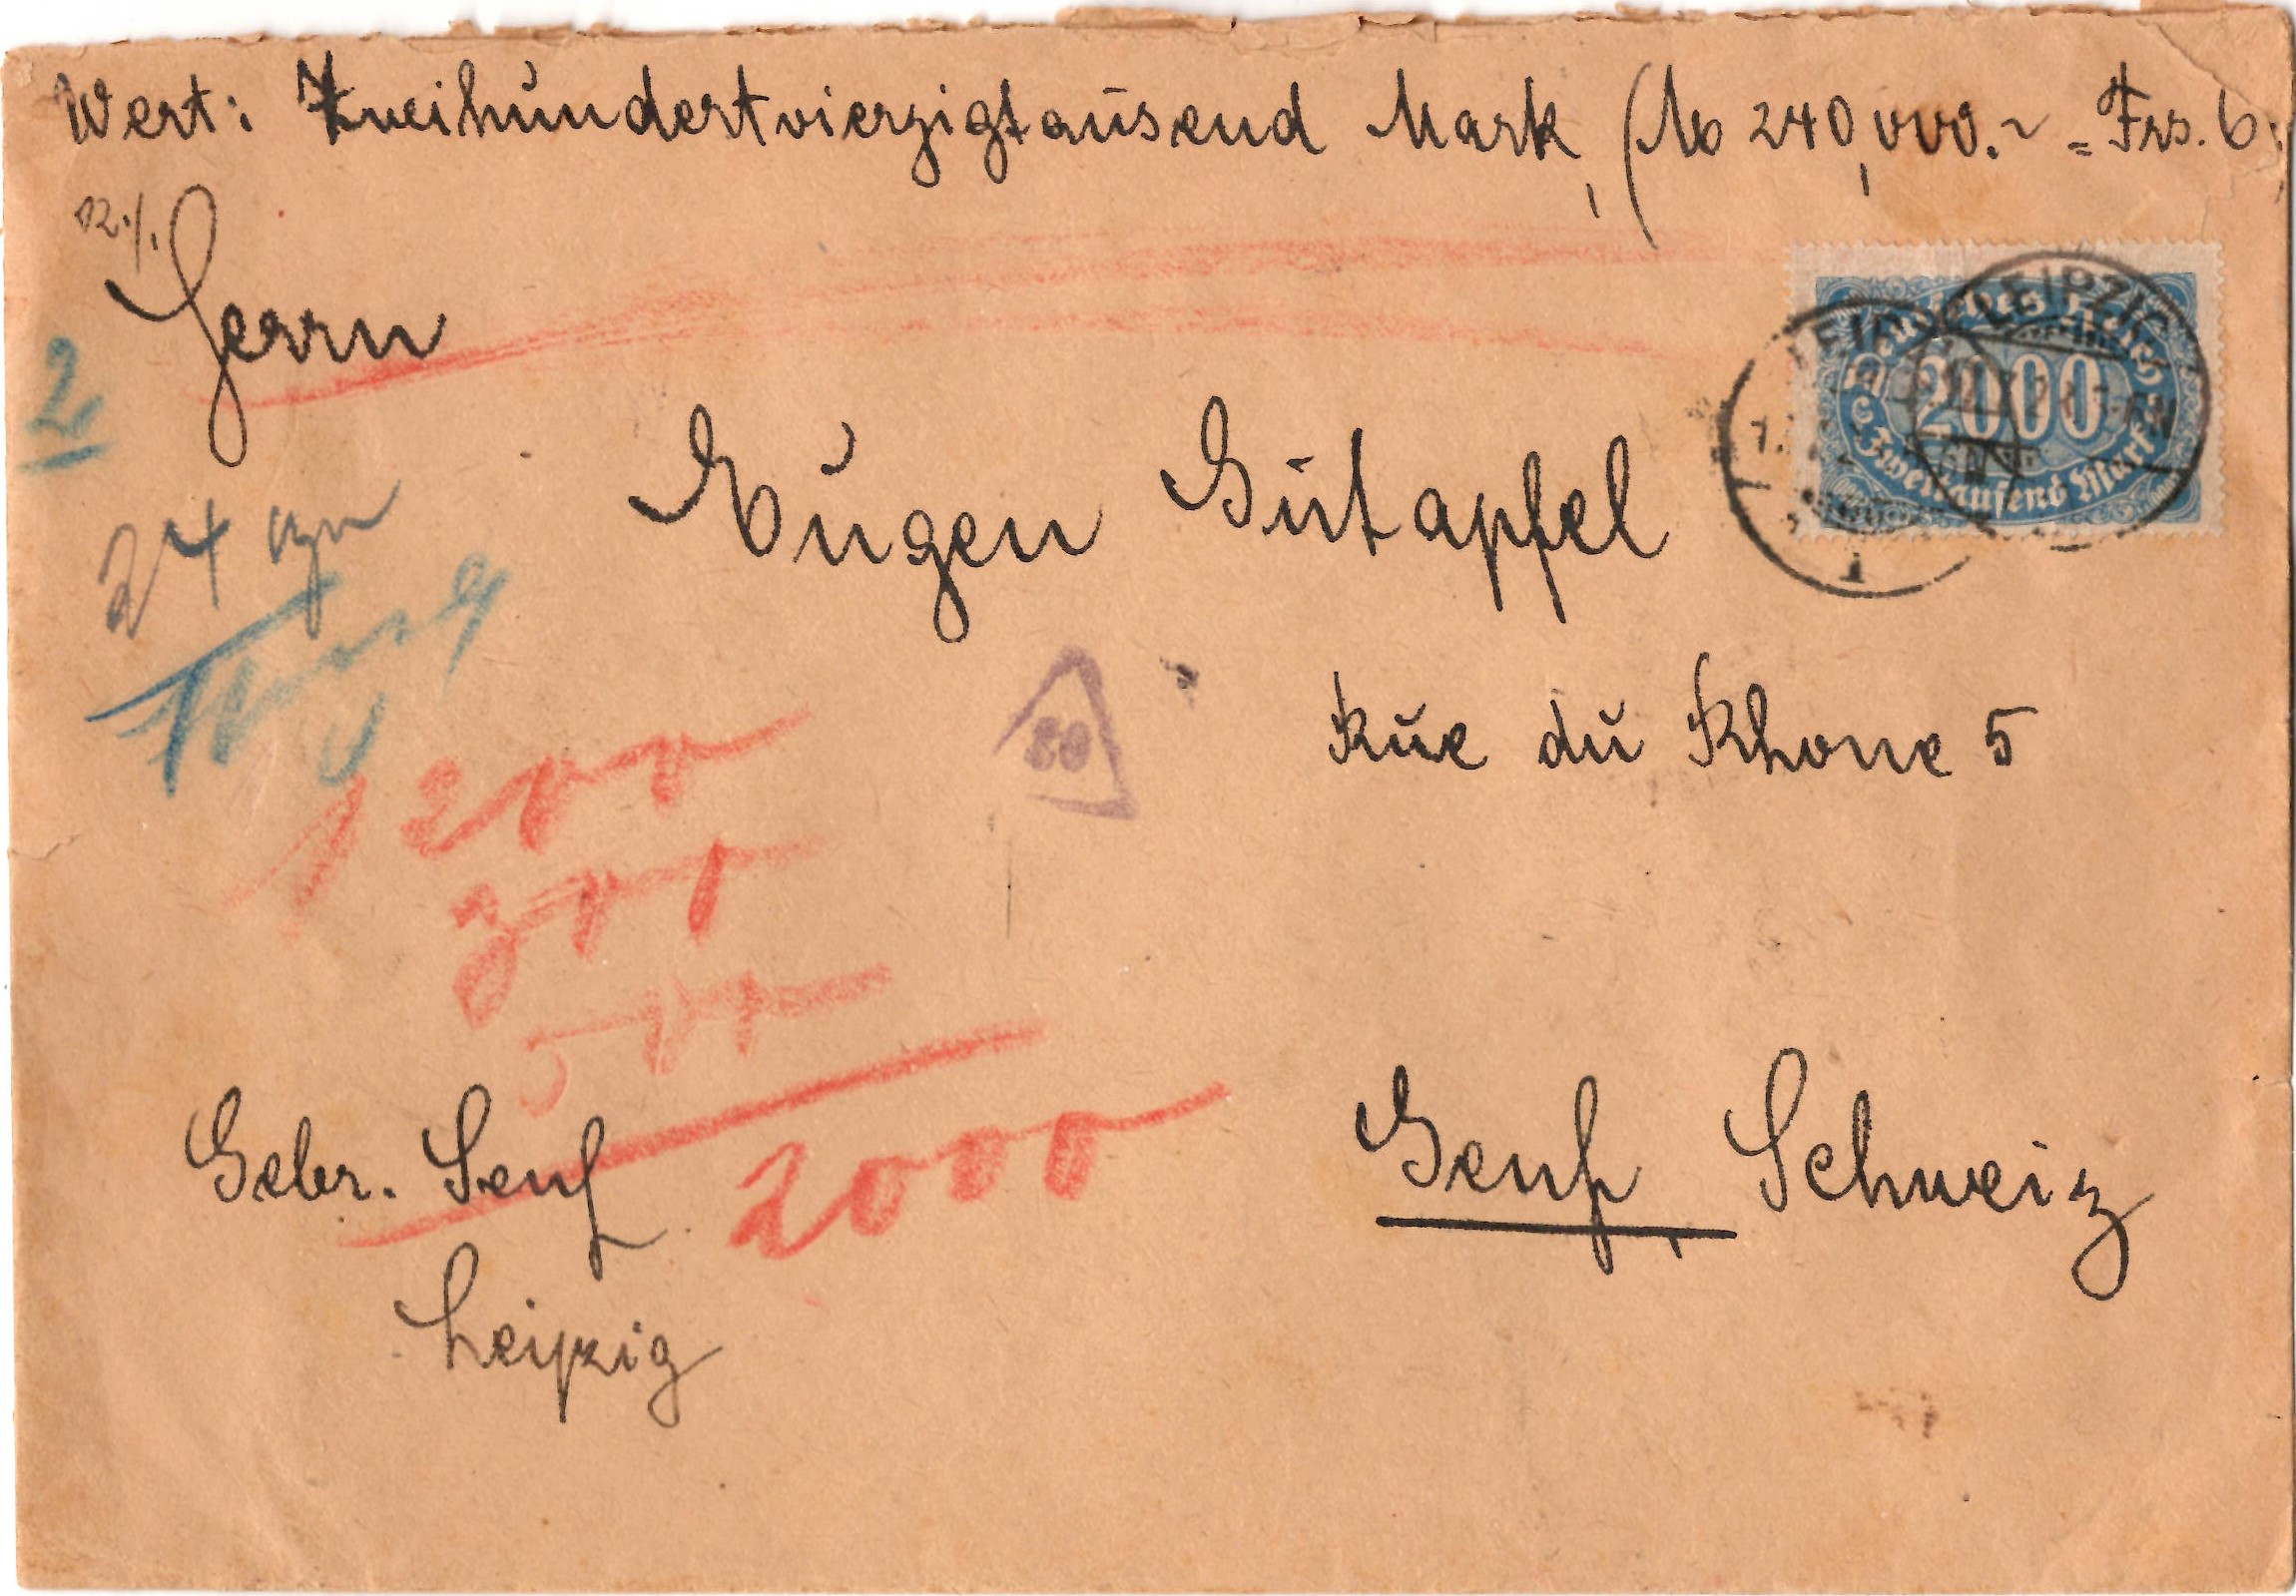 Wert: Zweihundertvierzigtausend Mark, (M 240,000.- = Frs. 6
Herrn
2
24 gr
Eugen Gutapfel
Deutsches Reich
2000
Zweitausend Mark
LEIPZIG
LEIPZIG
1
Rue du Rhone 5
80
1200
300
500
2000
Genf, Schweiz
Gebr. Senf
Leipzig